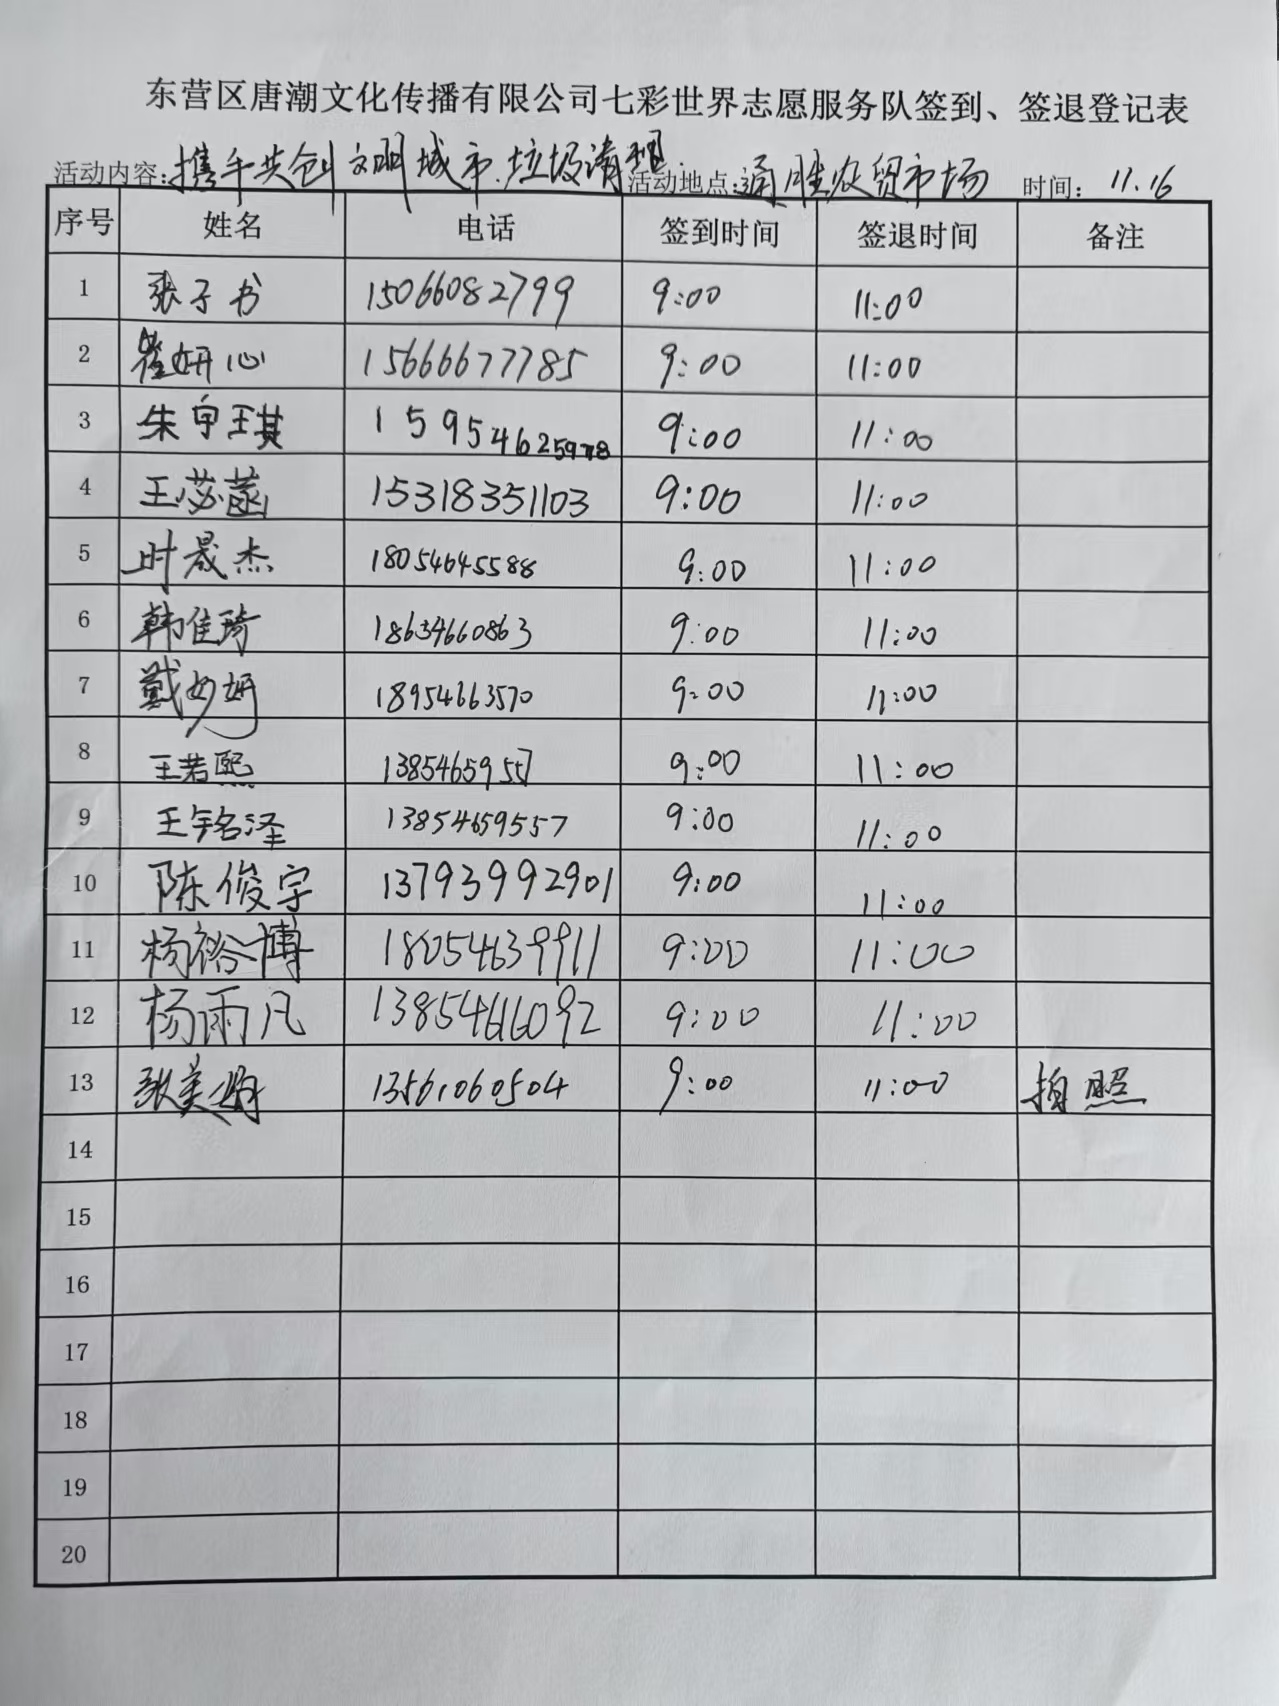 东营区唐潮文化传播有限公司七彩世界志愿服务队签到、签退登记表
活动内容：携手共创文明城市.垃圾清理 活动地点：通胜农贸市场 时间：11.16
序号 姓名 电话 签到时间 签退时间 备注
1 张子书 15066082799 9:00 11:00
2 崔妍心 15666677785 9:00 11:00
3 朱宇琪 15954625978 9:00 11:00
4 王苏菡 15318351103 9:00 11:00
5 时晟杰 18054645588 9:00 11:00
6 韩佳琦 18634660863 9:00 11:00
7 戴妙妍 18954663570 9:00 11:00
8 王若熙 13854659557 9:00 11:00
9 王铭泽 13854659557 9:00 11:00
10 陈俊宇 13793992901 9:00 11:00
11 杨裕博 18054639911 9:00 11:00
12 杨雨凡 13854616092 9:00 11:00
13 张美娟 13561060504 9:00 11:00 拍照
14
15
16
17
18
19
20